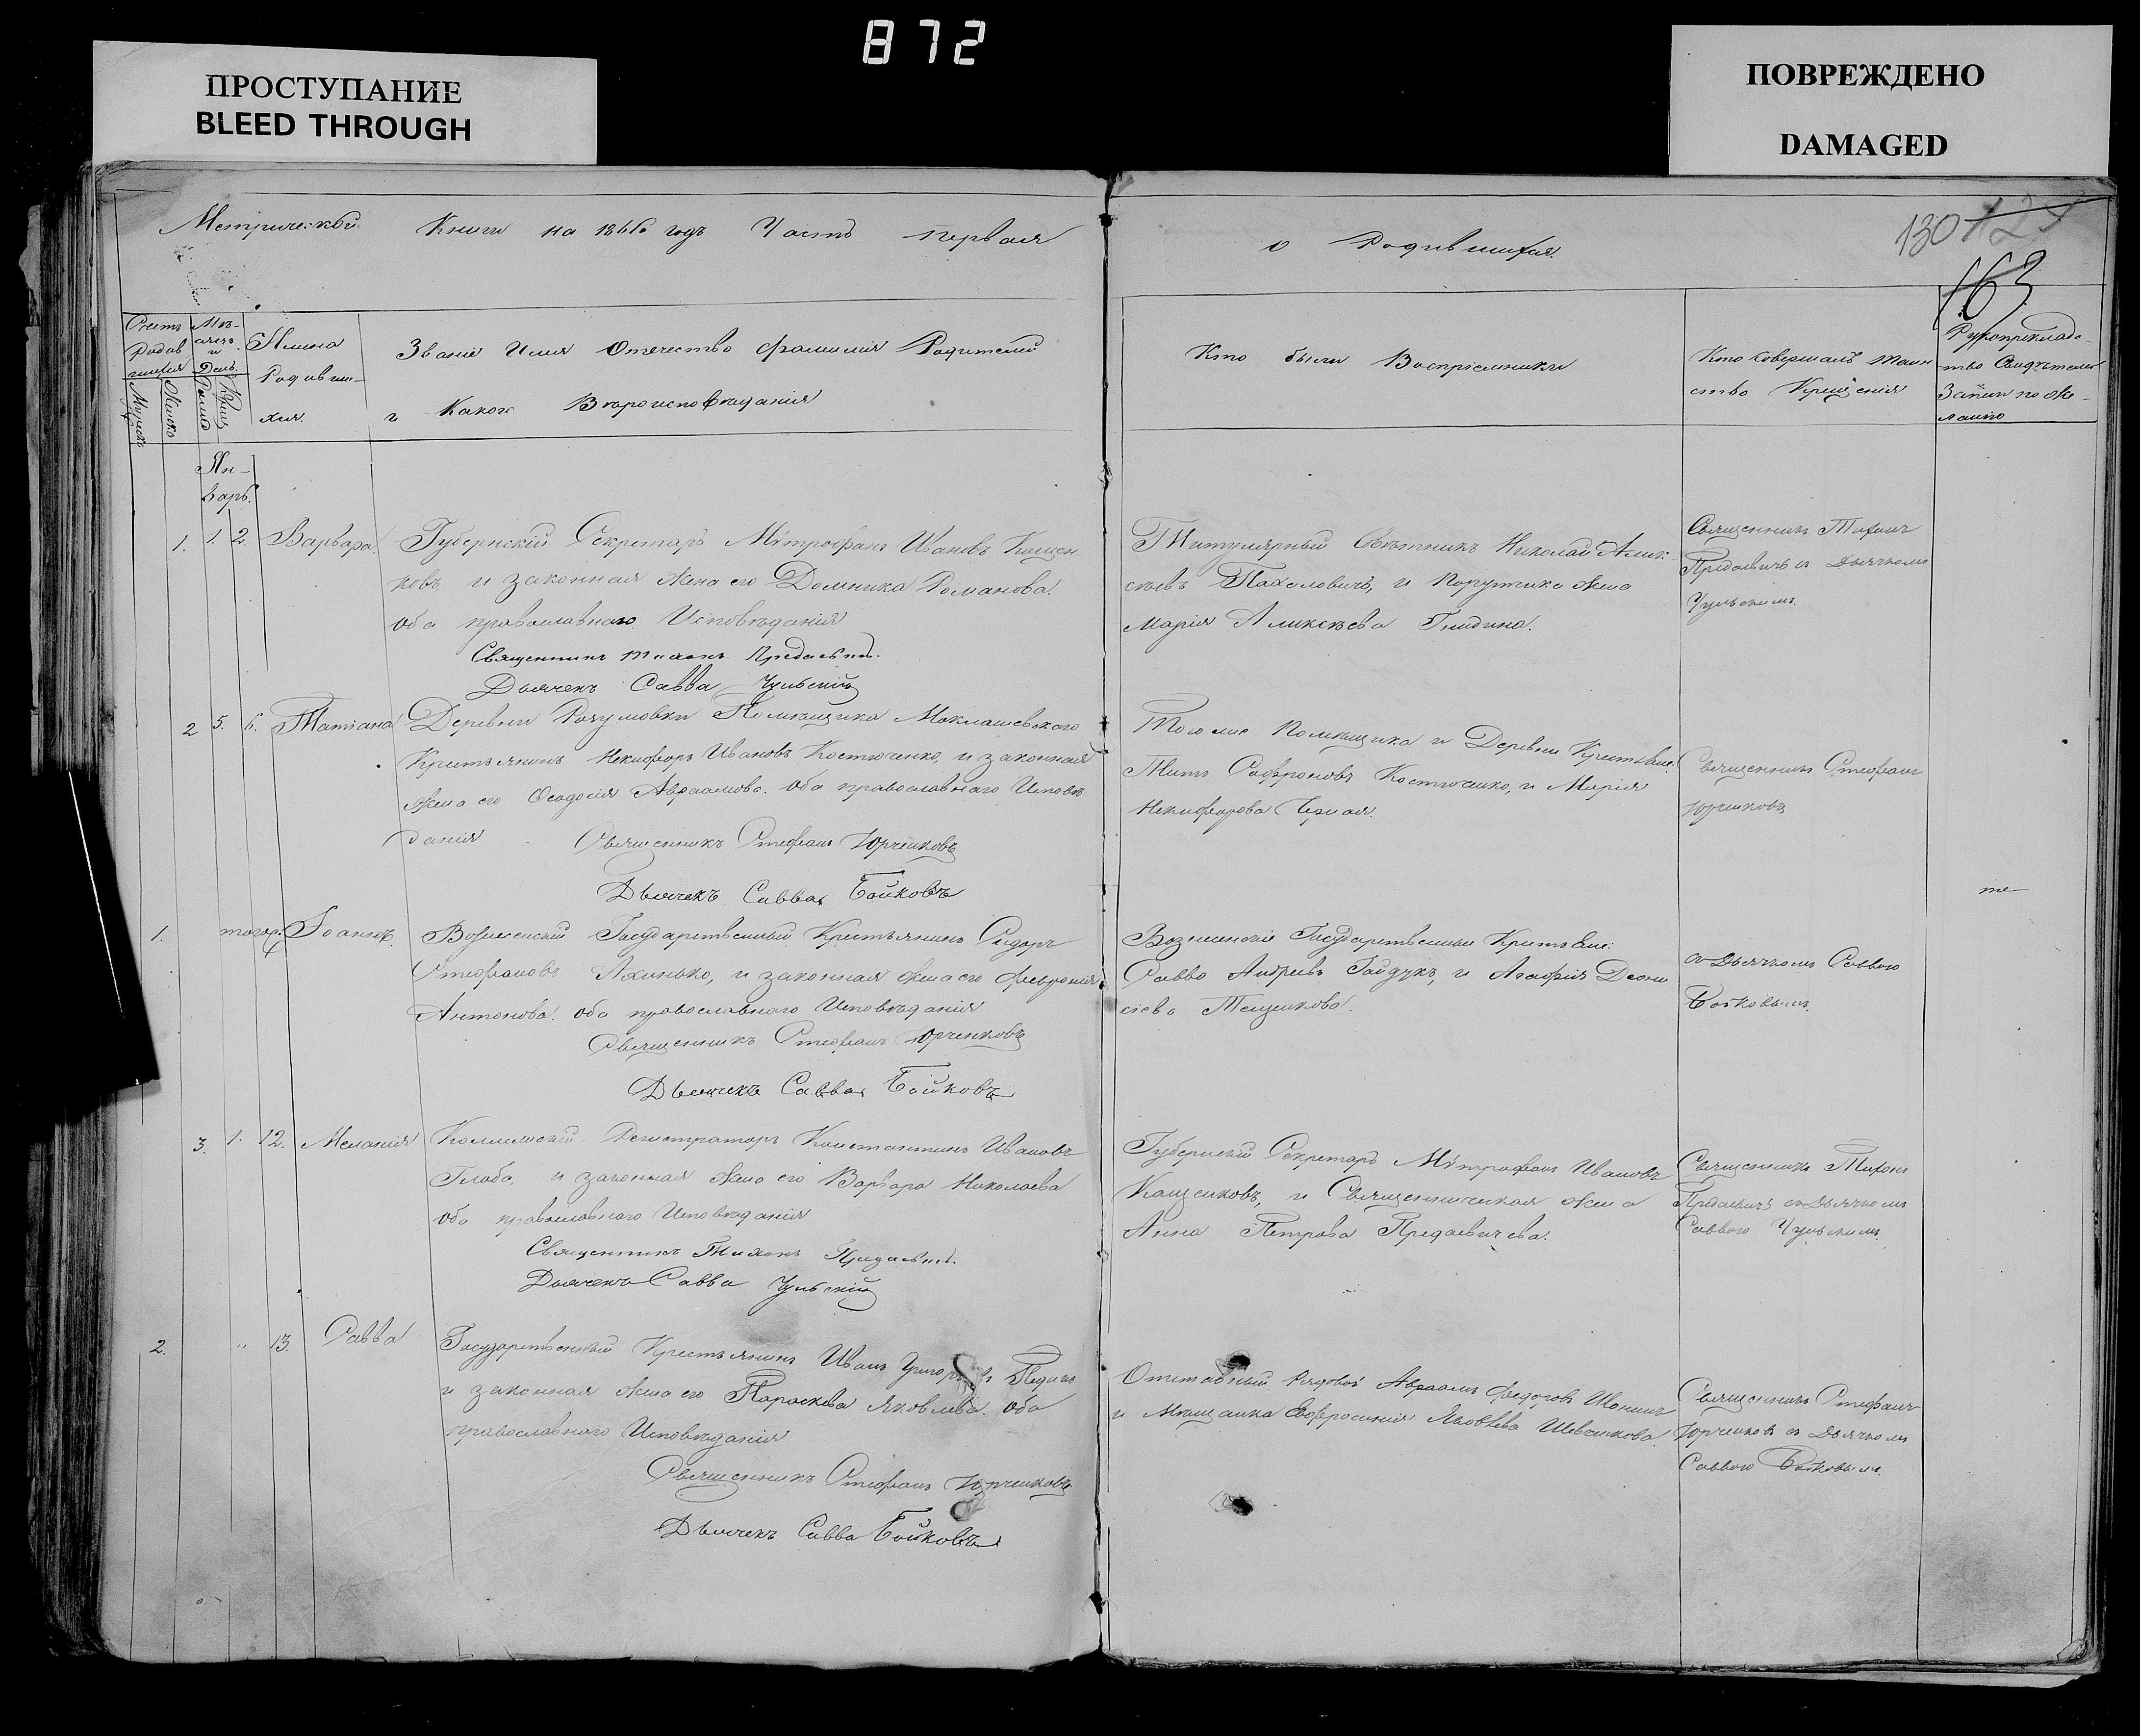 872
ПРОСТУПАНИЕ
BLEED THROUGH
ПОВРЕЖДЕНО
DAMAGED
130
163
Метрической Книги на 1846 годъ Часть первая
о Родившихся.
Счетъ Родившихся
Мужеск
Женско
Мѣсяцъ и День
Рожд
Крещ
Имена Родившихся.
Званіе Имя Отечество фамилія Родителей
и Какого Вѣроисповѣданія
Кто были Воспріемники
Кто Совершалъ Таинство Крещенія
Рукоприкладство Свидѣтелей Записи по желанію
Январь.
1. 1. 2. Варвара.
Губернскій Секретарь Митрофанъ Ивановъ Кащенковъ, и законная жена его Домника Романова.
оба православнаго Исповѣданія
Священникъ Тихонъ
Дьячекъ Савва Чульскій
Титулярный Совѣтникъ Николай Алексѣевъ Пахаловичъ, и Порутчика жена
Марія Алексѣева Гнидина.
Священникъ Тихонъ
съ Дьячкомъ
Чульскимъ.
2 5. 6. Татіана
Деревни Разумовки Помѣщика Миклашевскаго
Крестьянинъ Никифоръ Ивановъ Костюченко, и законная
жена его Феодосія Авраамова. оба православнаго Исповѣданія
Священникъ Стефанъ Юрченковъ
Дьячекъ Савва Бойковъ
Того же Помѣщика и Деревни Крестьяне.
Титъ Софроновъ Костюченко, и Марія
Никифорова Черная.
Священникъ Стефанъ
Юрченковъ
1. тогож. Іоаннъ.
Вознесенскій Государственный Крестьянинъ Сидоръ
Стефановъ Ахинько, и законная жена его Февронія
Антонова. оба православнаго Исповѣданія
Священникъ Стефанъ Юрченковъ
Дьячекъ Савва Бойковъ
Вознесенскіе Государственные Крестьяне:
Савва Андреевъ Гайдукъ, и Агафія Деонисіева Тещенкова.
съ Дьячкомъ Саввою
Бойковымъ.
3. 1. 12. Меланія
Коллежскій Регистраторъ Константинъ Ивановъ
Глоба, и законная жена его Варвара Николаева
оба православнаго Исповѣданія
Священникъ Тихонъ
Дьячекъ Савва Чульскій
Губернскій Секретарь Митрофанъ Ивановъ
Кащенковъ, и Священническая жена
Анна Петрова
Священникъ Тихонъ
съ Дьячкомъ
Саввою Чульскимъ.
2. " 13. Савва
Государственный Крестьянинъ Иванъ
и законная жена его Параскева Яковлева. оба
православнаго Исповѣданія
Священникъ Стефанъ Юрченковъ
Дьячекъ Савва Бойковъ
Отставный Рядовой Авраамъ Федоровъ
и Мѣщанка Евфросинія Яковлева Шевченкова.
Священникъ Стефанъ
Юрченковъ съ Дьячкомъ
Саввою Бойковымъ.